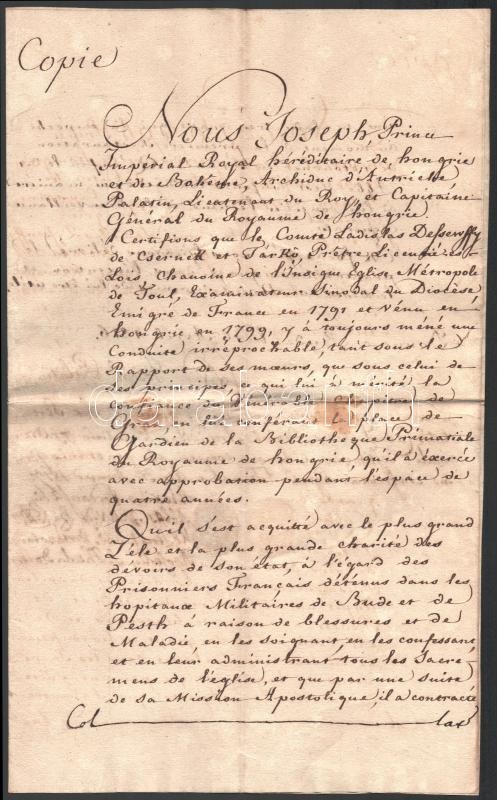 Copie
Nous Joseph Prince
Impérial Royal héréditaire de hongrie
et de Bohême, Archiduc d'Autriche
Palatin, Lieutenant du Roy, et Capitaine
Général du Royaume de hongrie.
Certifions que le Comte Ladislas Dessewffy
de Csernek et Tarkö, Prêtre, Licentié ès
Lois, Chanoine de l'Insigne Eglise Métropole
de Toul, Examinateur Sinodal du Diocèse,
Emigré de France en 1791 et Vénu en
hongrie en 1799, y à toujours méné une
Conduite irréprochable, tant sous le
Rapport de ses mœurs, que sous celui de
ses principes, ce qui lui à mérité la
confiance du Chapitre de
Gran en lui conférant la place de
Gardien de la Bibliotheque Primatiale
du Royaume de hongrie, qu'il à éxercée
avec approbation pendant l'espace de
quatre années.
Qu'il s'est acquitté avec le plus grand
Zèle et la plus grande charité des
dévoirs de son état, à l'égard des
Prisonniers Français détenus dans les
hopitaux Militaires de Bude et de
Pesth à raison de blessures et de
Maladie, en les soignant, en les confessant,
et en leur administrant tous les Sacre-
mens de l'église, et que par une suite
de sa Mission Apostolique, il a contracté
Col lax